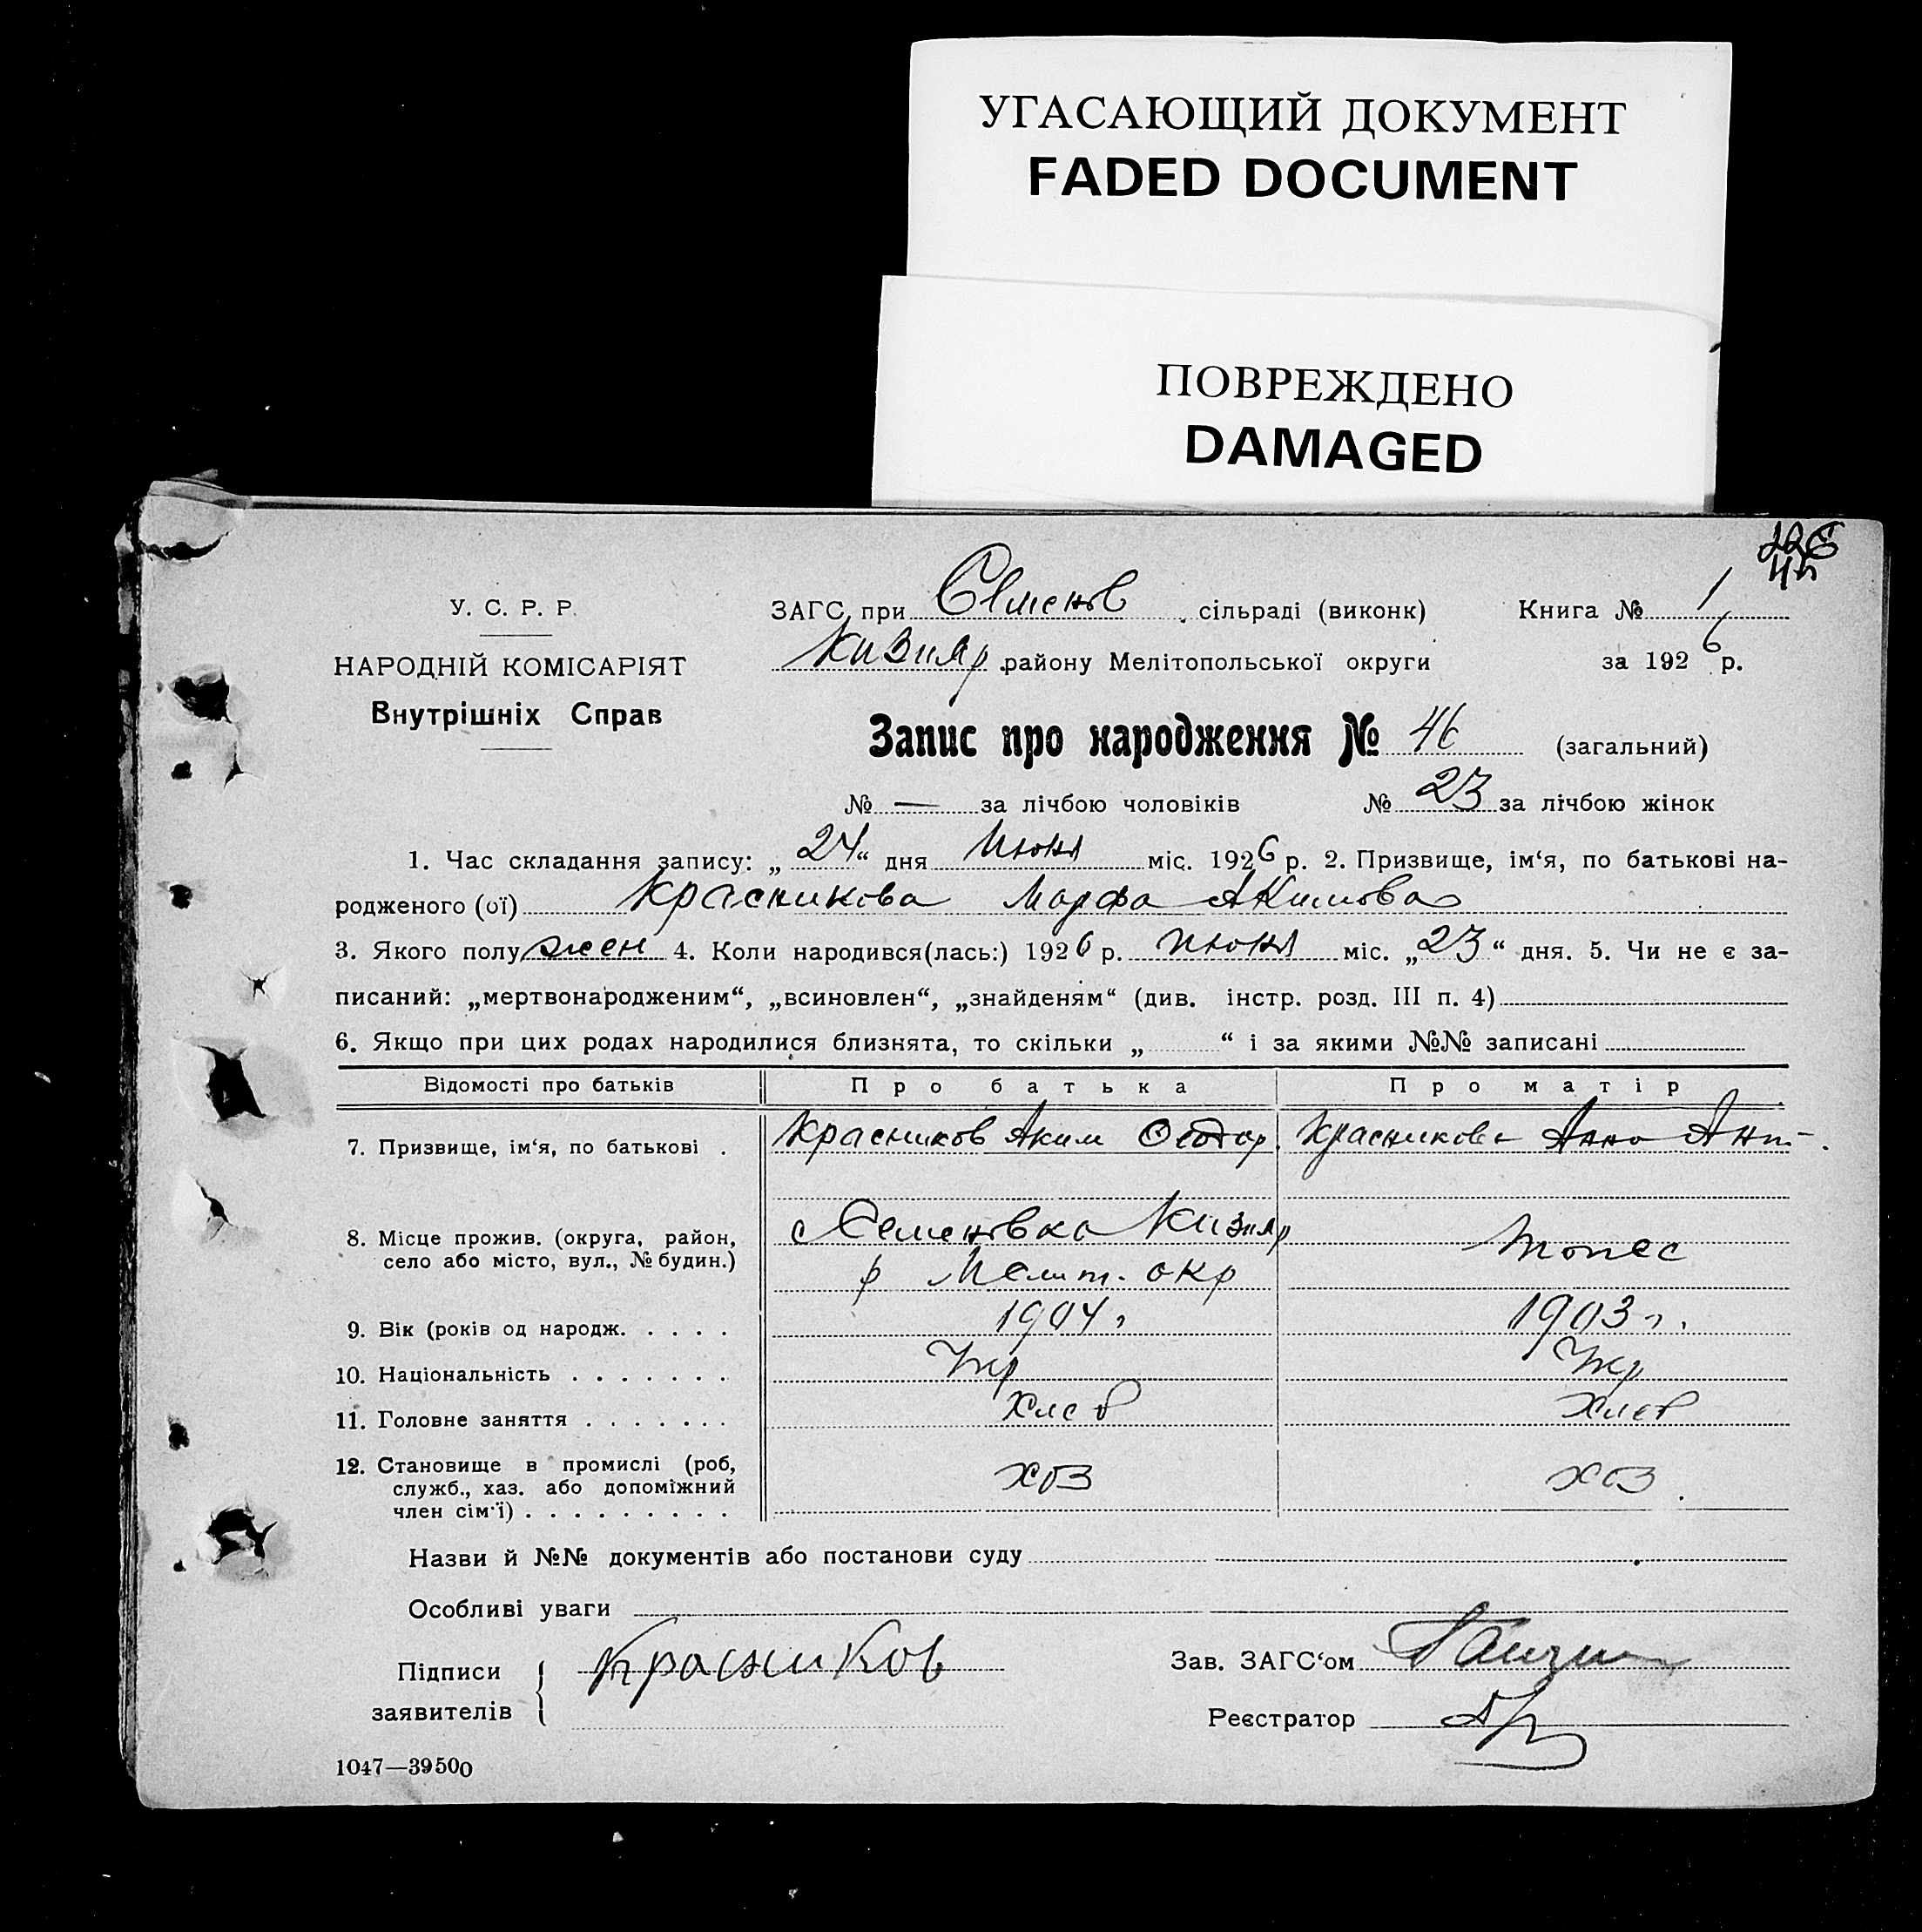 УГАСАЮЩИЙ ДОКУМЕНТ
FADED DOCUMENT
ПОВРЕЖДЕНО
DAMAGED
У. С. Р. Р.
НАРОДНІЙ КОМІСАРІЯТ
Внутрішніх Справ
ЗАГС при Семенов. сільраді (виконк) Книга № 1
Кизияр району Мелітопольської округи за 1926 р.
Запис про народження № 46 (загальний)
№ — за лічбою чоловіків № 23 за лічбою жінок
1. Час складання запису: „24“ дня Июня міс. 1926 р. 2. Призвище, ім‘я, по батькові на-
родженого (ої) Красникова Марфа Акимова
3. Якого полу жен 4. Коли народився(лась:) 1926 р. июня міс. „23“ дня. 5. Чи не є за-
писаний: „мертвонародженим“, „всиновлен“, „знайденям“ (див. інстр. розд. III п. 4)
6. Якщо при цих родах народилися близнята, то скільки „ “ і за якими №№ записані
Відомості про батьків Про батька Про матір
7. Призвище, ім‘я, по батькові . Красников Аким Феодор. Красникова Анна Ант.
8. Місце прожив. (округа, район,
село або місто, вул., № будин.)
с Семеновка Кизияр
р Мелит. окр
тоже
9. Вік (років од народж. . . . . 1904 г 1903 г.
10. Національність . . . . . . . Укр Укр
11. Головне заняття . . . . . . . Хлеб Хлеб
12. Становище в промислі (роб,
служб., хаз. або допоміжний
член сім‘ї) . . . . . . . . .
хоз хоз.
Назви й №№ документів або постанови суду
Особливі уваги
Підписи
заявителів
Красников
Зав. ЗАГС‘ом
Реєстратор
1047—39500